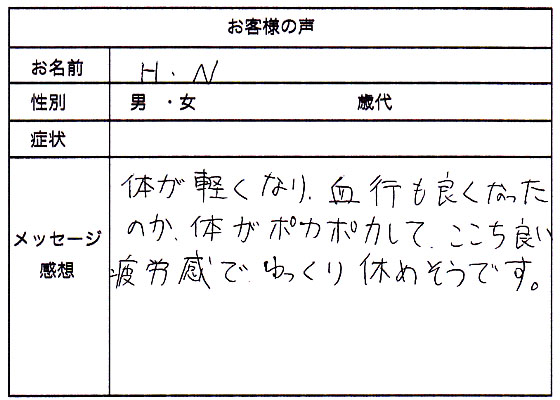 お客様の声
お名前 H.N
性別 男・女 歳代
症状
メッセージ
感想
体が軽くなり、血行も良くなった
のか、体がポカポカして、ここち良い
疲労感で、ゆっくり休めそうです。